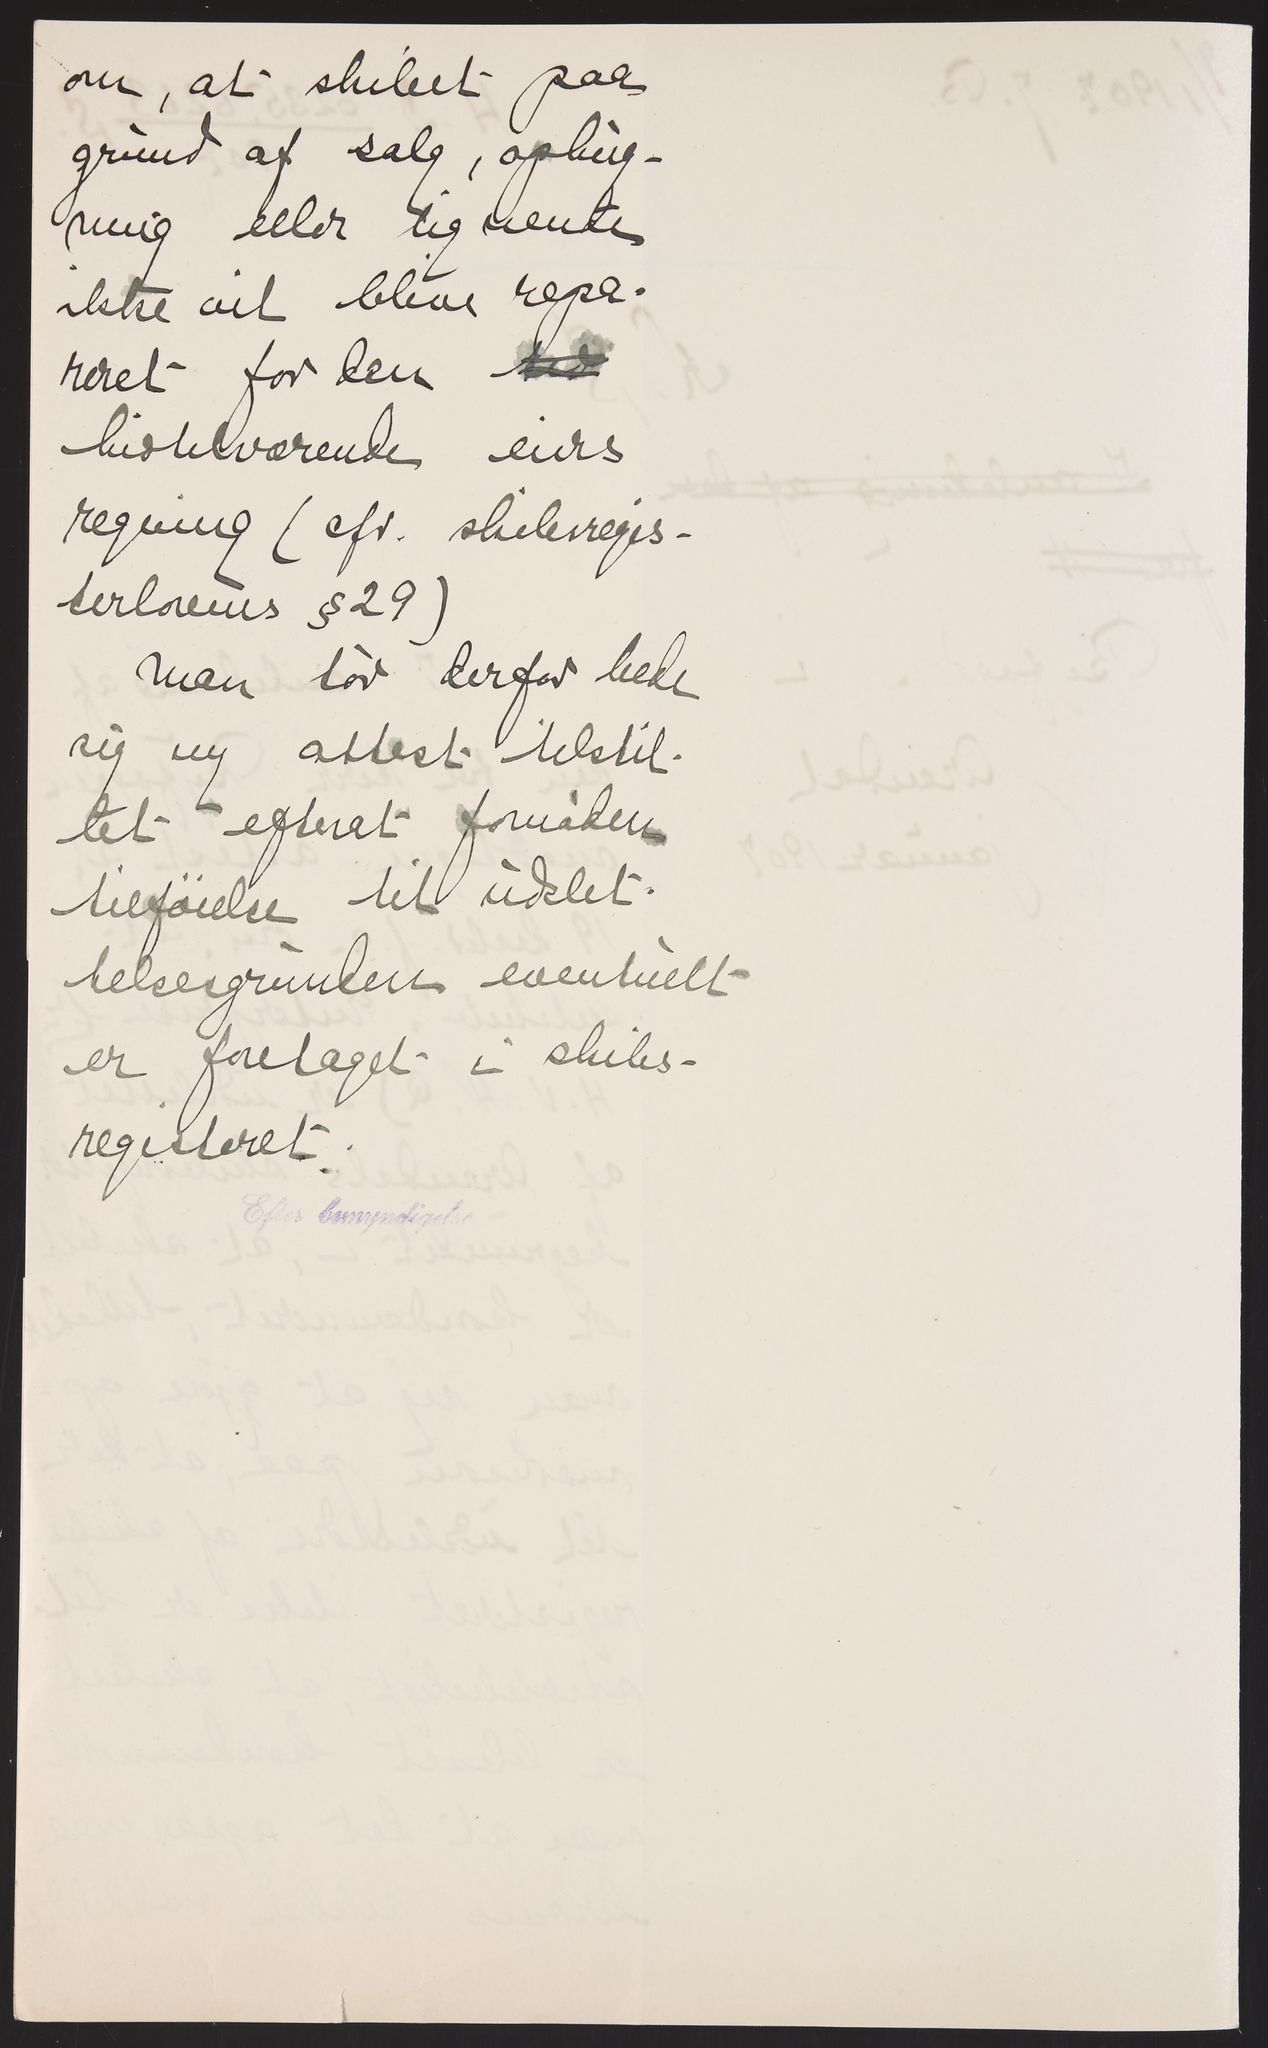 om, at skibet paa
grund af salg, ophug-
ning eller lignende
ikke vil blive repa-
reret for den
hidtilværende eiers
regning (cfr. skibsregis-
terlovens § 29)
Man tör derfor bede
sig ny attest tilstil-
let efterat fornöden
tilföielse til udslet-
telsesgrunden eventuelt
er foretaget i skibs-
registeret.
Efter bemyndigelse